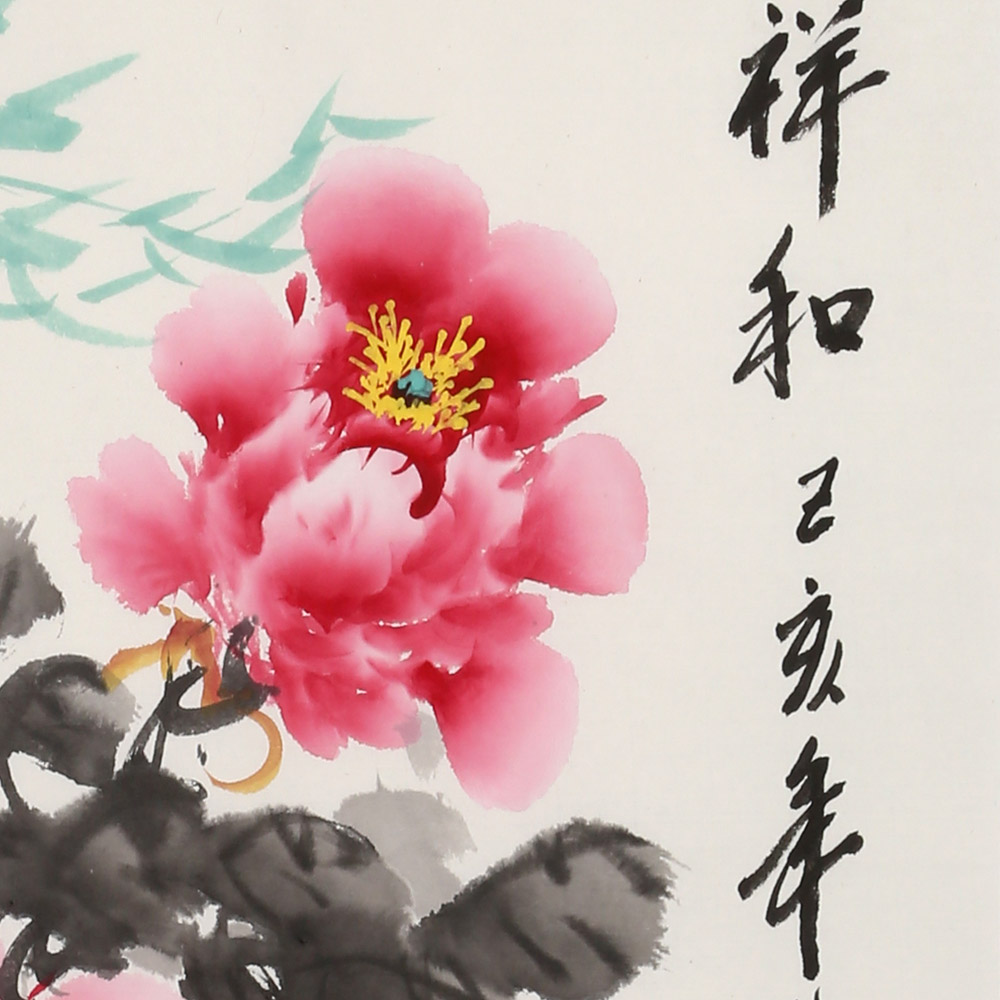 祥和己亥年